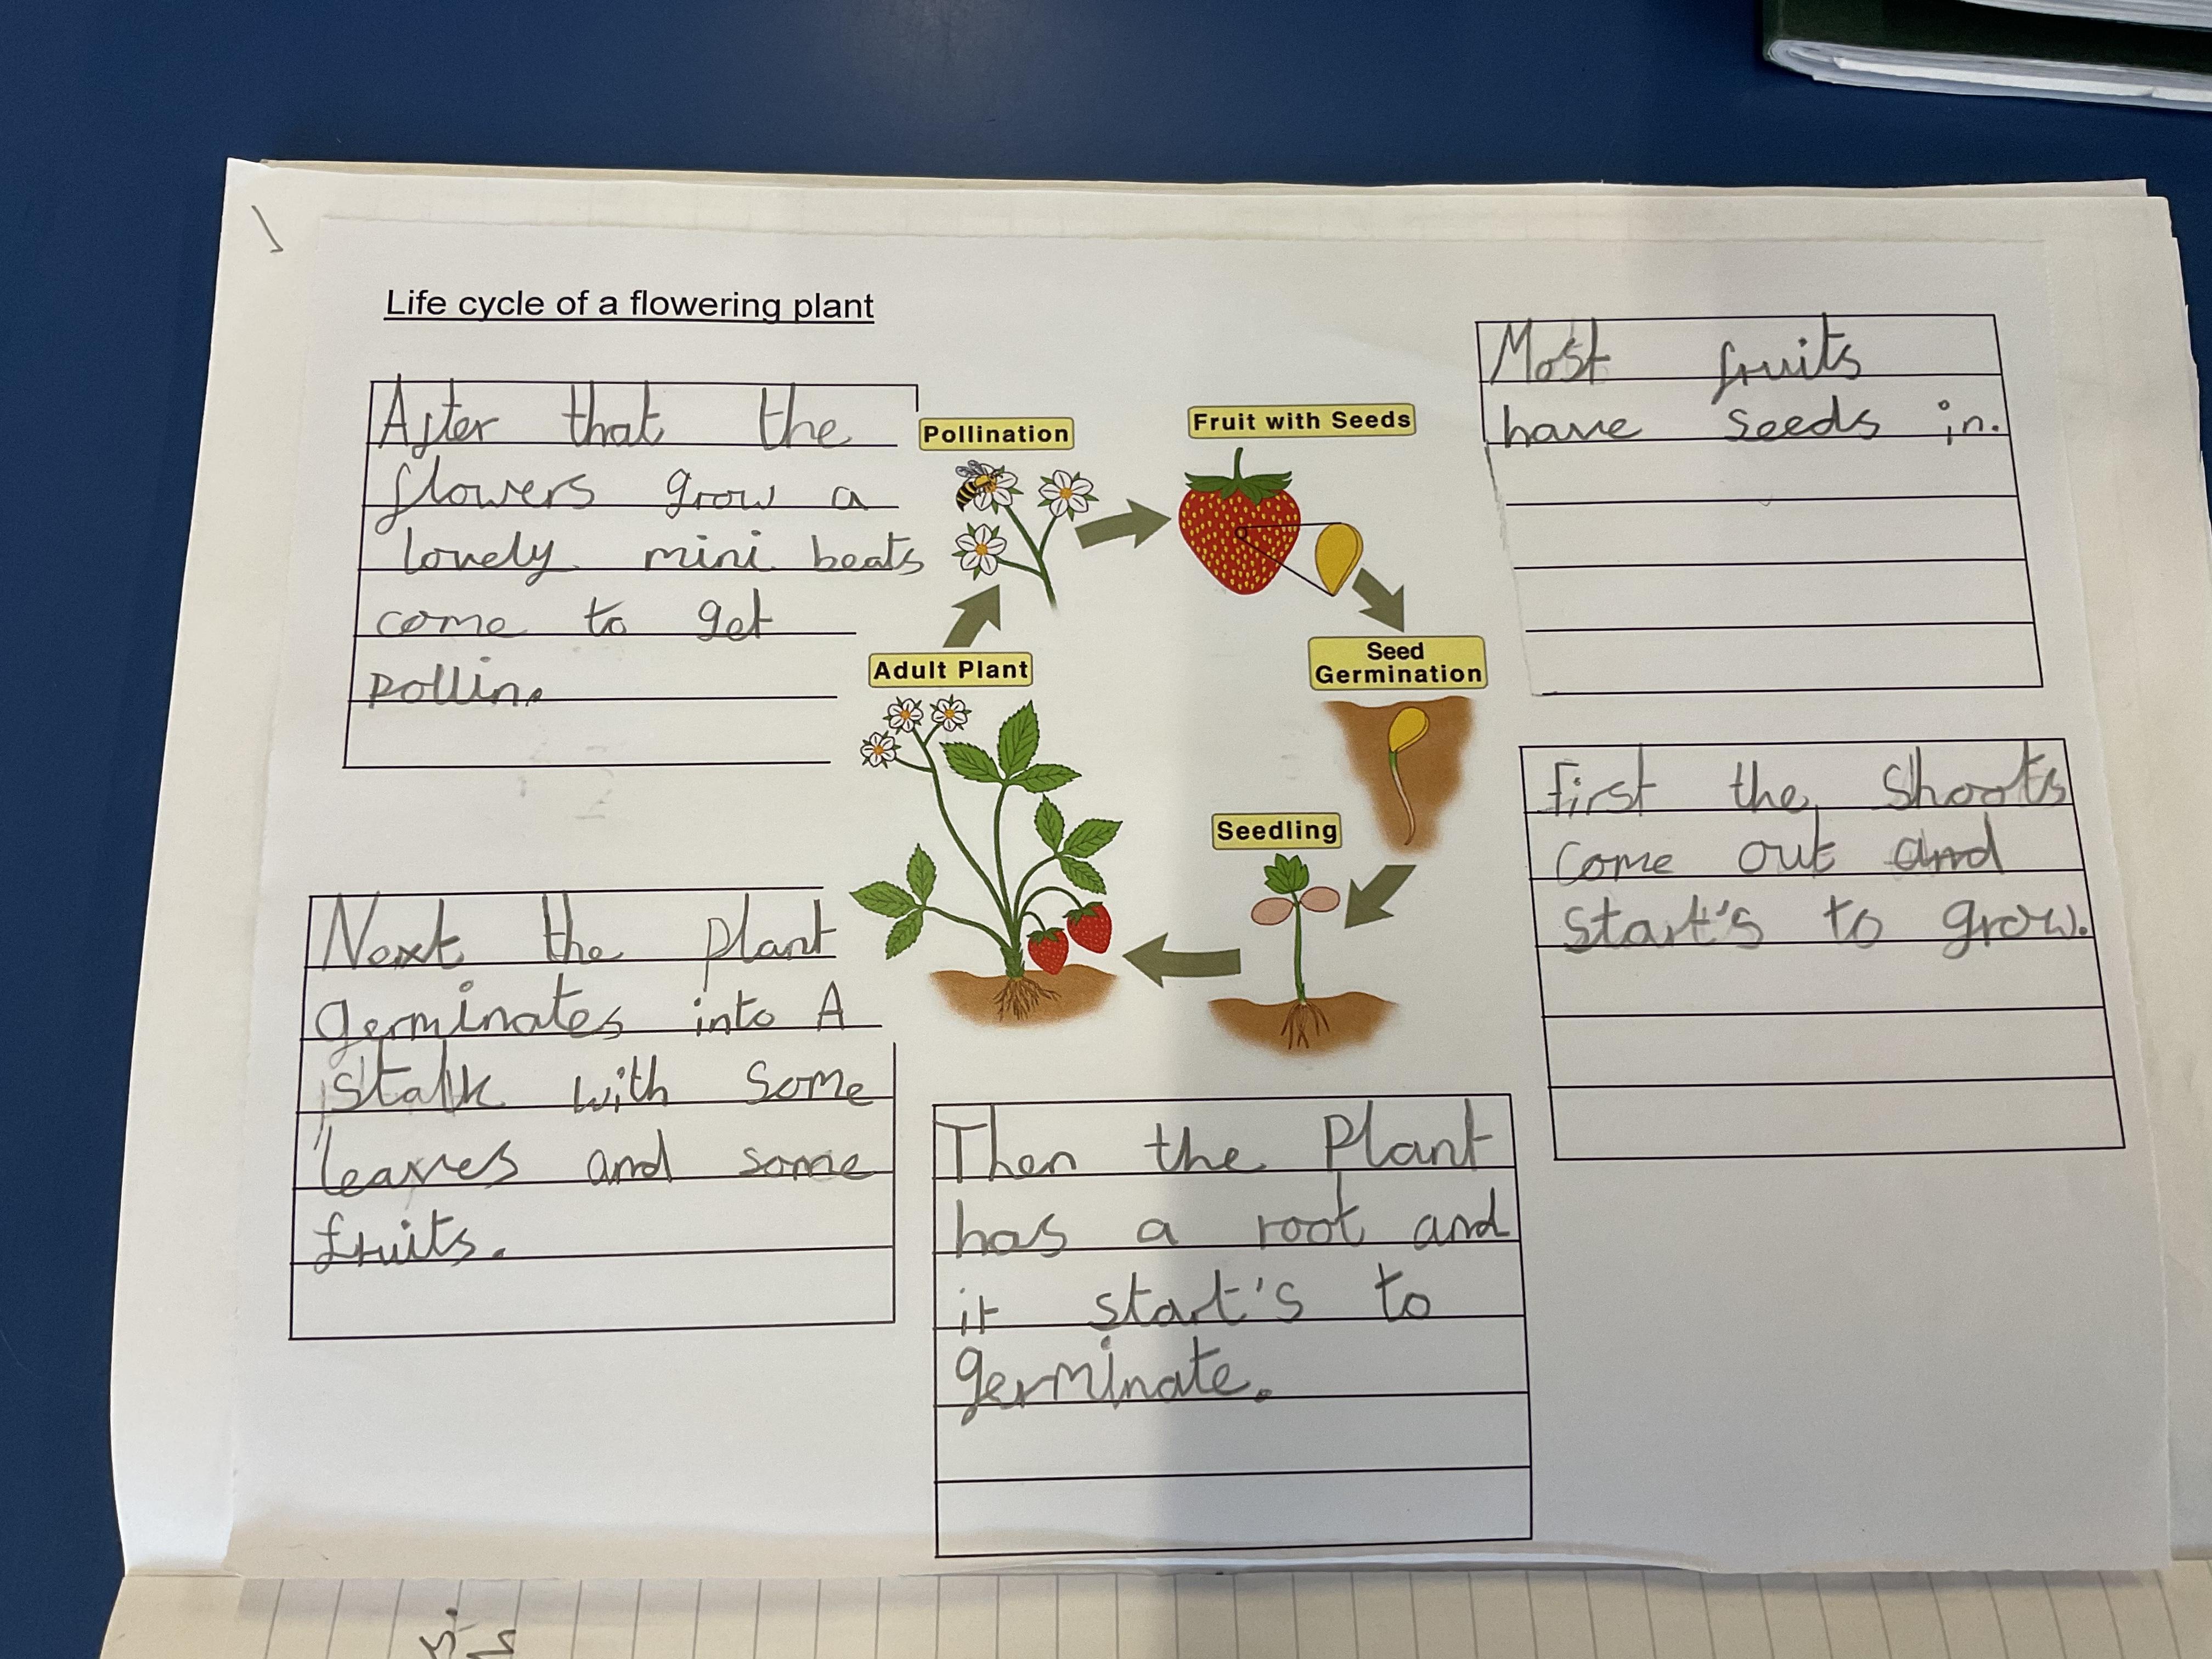 Life cycle of a flowering plant
After that the
flowers grow a
lovely mini beats
come to get
pollin.
Next the plant
germinates into A
stalk with some
leaves and some
fruits.
Pollination
Fruit with Seeds
Seed
Germination
Adult Plant
Seedling
Then the Plant
has a root and
it start's to
germinate.
Most fruits
have seeds in.
First the shoots
come out and
start's to grow.